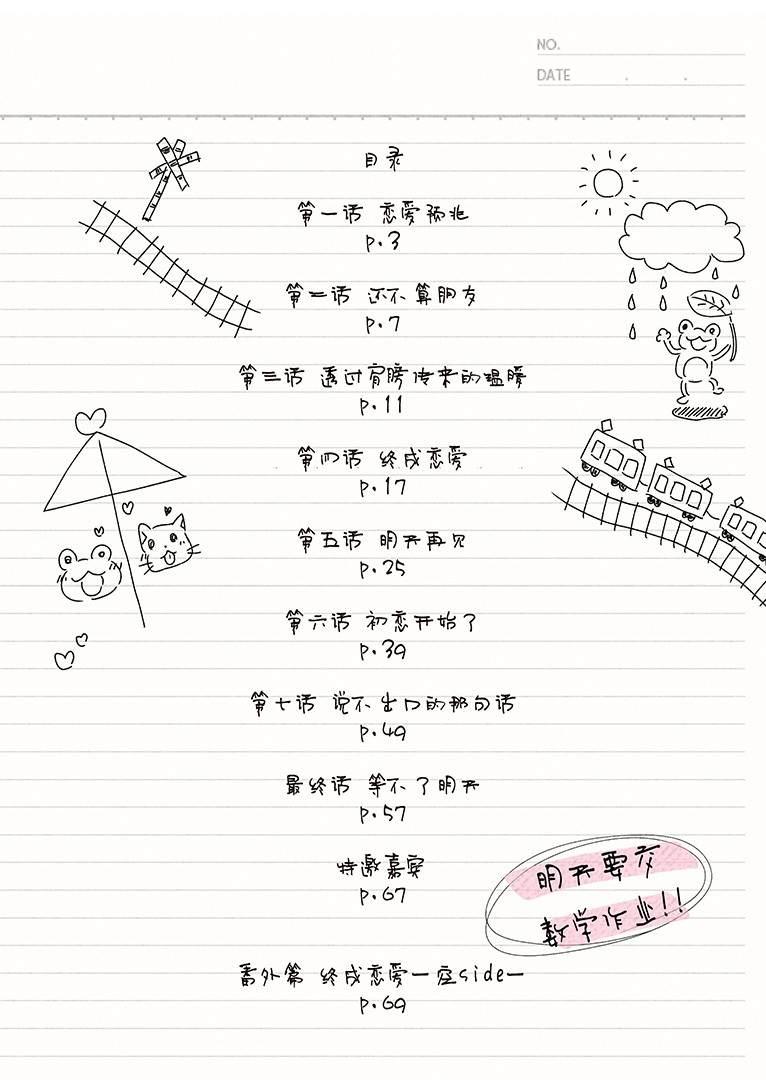 NO.
DATE . .
目录
第一话 恋爱预兆
p.3
第二话 还不算朋友
p.7
第三话 透过肩膀传来的温暖
p.11
第四话 终成恋爱
p.17
第五话 明天再见
p.25
第六话 初恋开始了
p.39
第七话 说不出口的那句话
p.49
最终话 等不了明天
p.57
特邀嘉宾
p.67
明天要交
数学作业!!
番外篇 终成恋爱—空side—
p.69